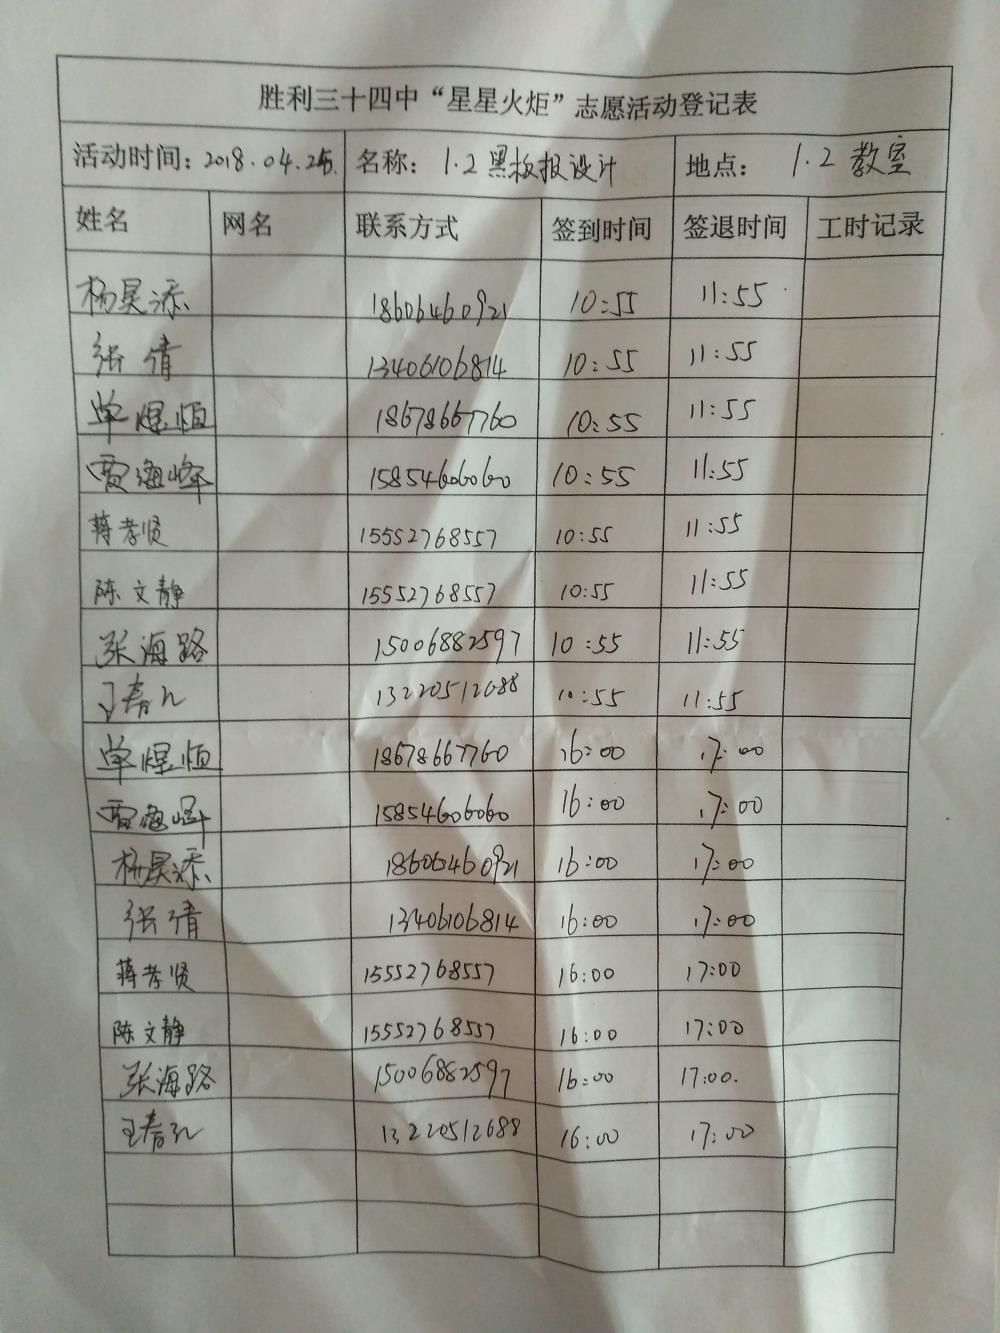 胜利三十四中“星星火炬”志愿活动登记表
活动时间：2018.04.25. 名称：1.2黑板报设计 地点：1.2 教室
姓名 网名 联系方式 签到时间 签退时间 工时记录
杨昊添 18606460921 10:55 11:55
张倩 13406106814 10:55 11:55
单煜恒 18678667760 10:55 11:55
贾海峰 15854606060 10:55 11:55
蒋孝贤 15552768557 10:55 11:55
陈文静 15552768557 10:55 11:55
张海路 15006882597 10:55 11:55
13220512688 10:55 11:55
单煜恒 18678667760 16:00 17:00
贾海峰 15854606060 16:00 17:00
杨昊添 18606460921 16:00 17:00
张倩 13406106814 16:00 17:00
蒋孝贤 15552768557 16:00 17:00
陈文静 15552768557 16:00 17:00
张海路 15006882597 16:00 17:00.
13220512688 16:00 17:00